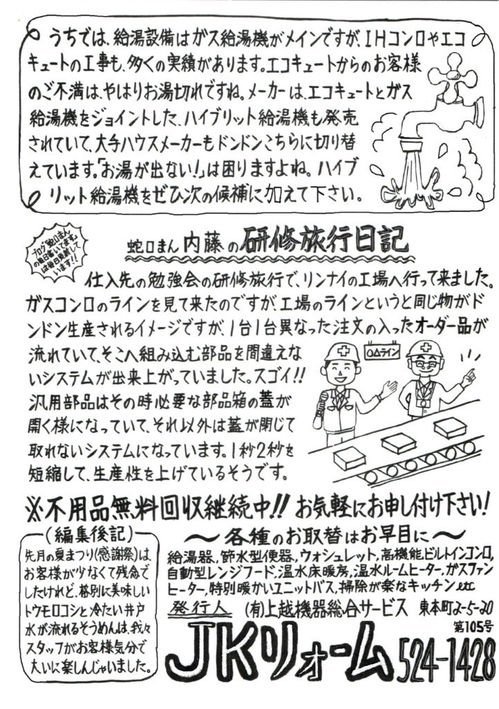 うちでは、給湯設備はガス給湯機がメインですが、IHコンロやエコ
キュートの工事も、多くの実績があります。エコキュートからのお客様
のご不満は、やはりお湯切れですね。メーカーは、エコキュートとガス
給湯機をジョイントした、ハイブリット給湯機も発売
されていて、大手ハウスメーカーもドンドンこちらに切り替
えています。「お湯が出ない!」は困りますよね。ハイブ
リット給湯機をぜひ次の候補に加えて下さい。
蛇口まん 内藤の研修旅行日記
仕入先の勉強会の研修旅行で、リンナイの工場へ行って来ました。
ガスコンロのラインを見て来たのですが、工場のラインというと同じ物がド
ンドン生産されるイメージですが、1台1台異なった注文の入ったオーダー品が
流れていて、そこへ組み込む部品を間違えな
いシステムが出来上がっていました。スゴイ!!
汎用部品はその時必要な部品箱の蓋が
開く様になっていて、それ以外は蓋が閉じて
取れないシステムになっています。1秒2秒を
短縮して、生産性を上げているそうです。
ロムライン
※不用品無料回収継続中!! お気軽にお申し付け下さい!
(編集後記)
先月の夏まつり(感謝祭)は
お客様が少なくて残念で
したけれど、格別に美味しい
トウモロコシと冷たい井戸
水が流れるそうめんは、我々
スタッフがお客様気分で
大いに楽しんじゃいました。
〜各種のお取替はお早目に〜
給湯器、節水型便器、ウォシュレット、高機能ビルトインコンロ、
自動型レンジフード、温水床暖房、温水ルームヒーター、ガスファン
ヒーター、特別暖かいユニットバス、掃除が楽なキッチンetc
発行人 (有)上越機器総合サービス 東本町2-5-20
第105号
JKリォーム 524-1428